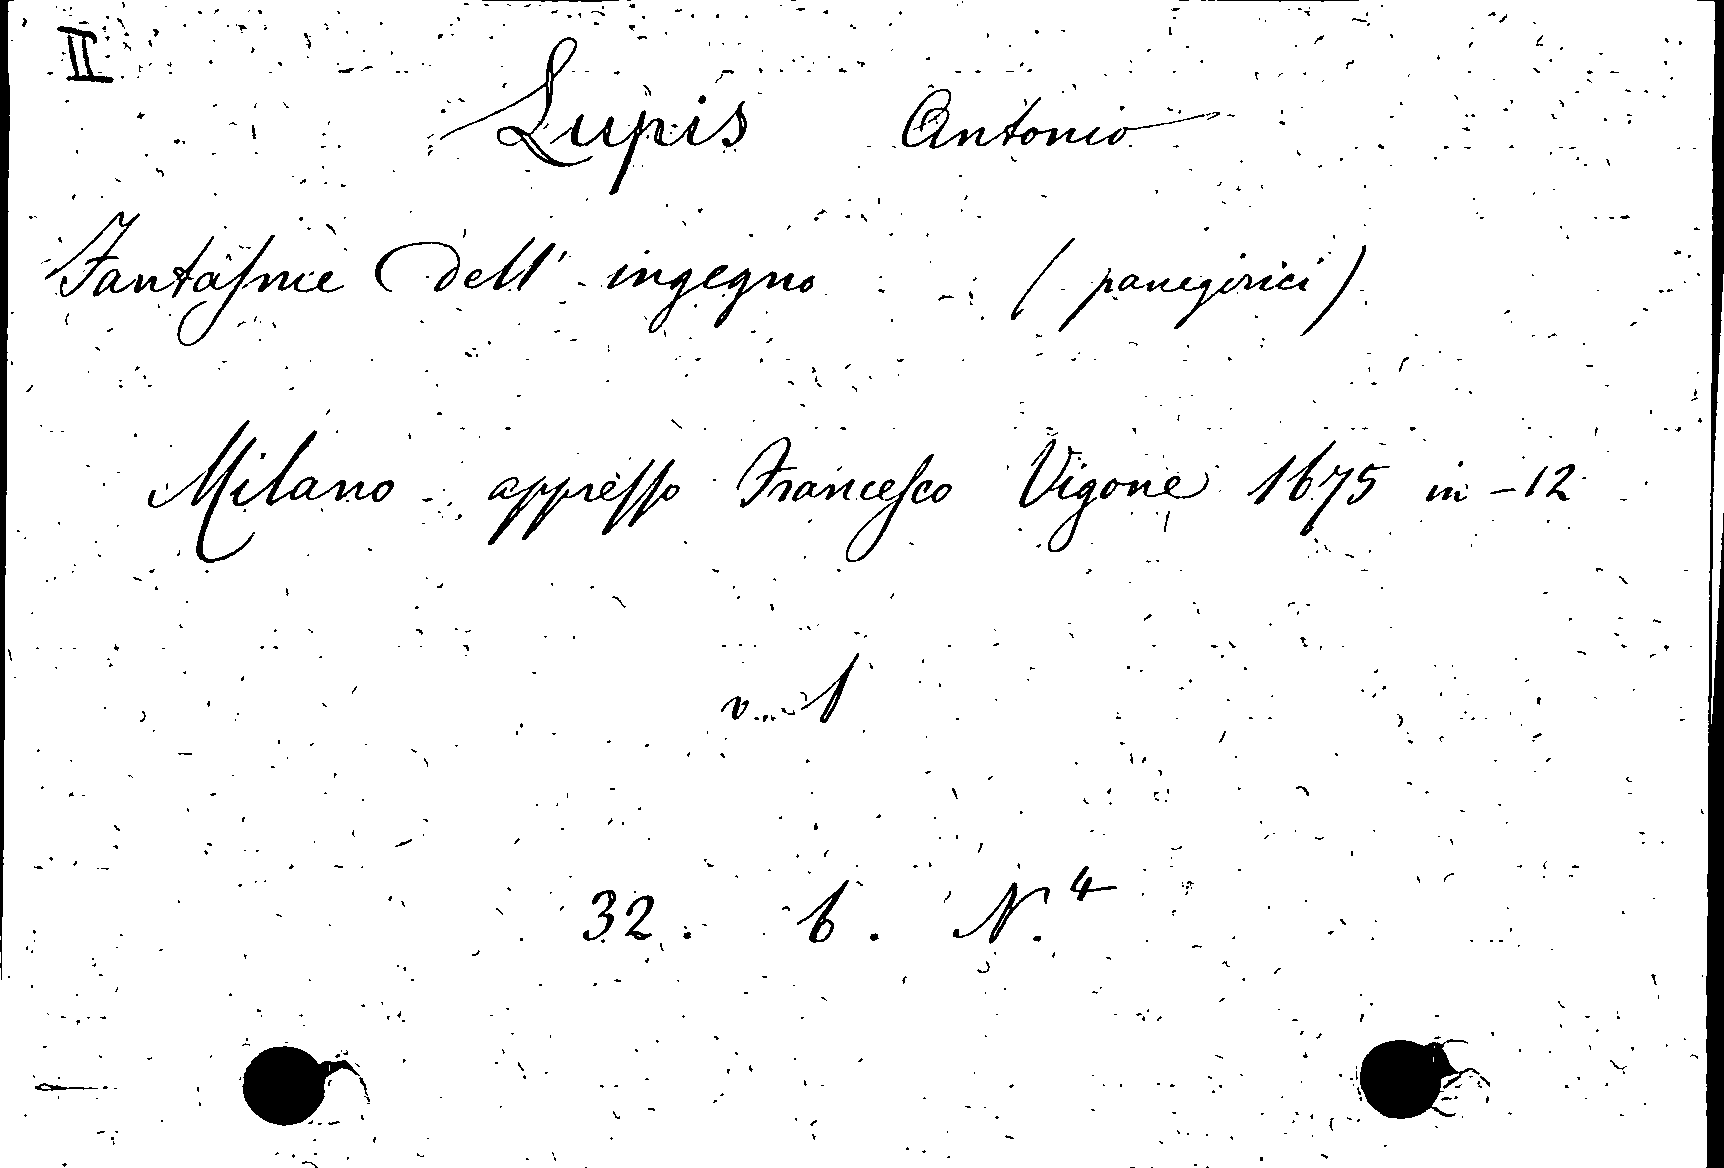 II
Lupis Antonio
Fantasme dell' ingegno (panegirici)
Milano appresso Francesco Vigone 1675 in-12
32. b. N.4